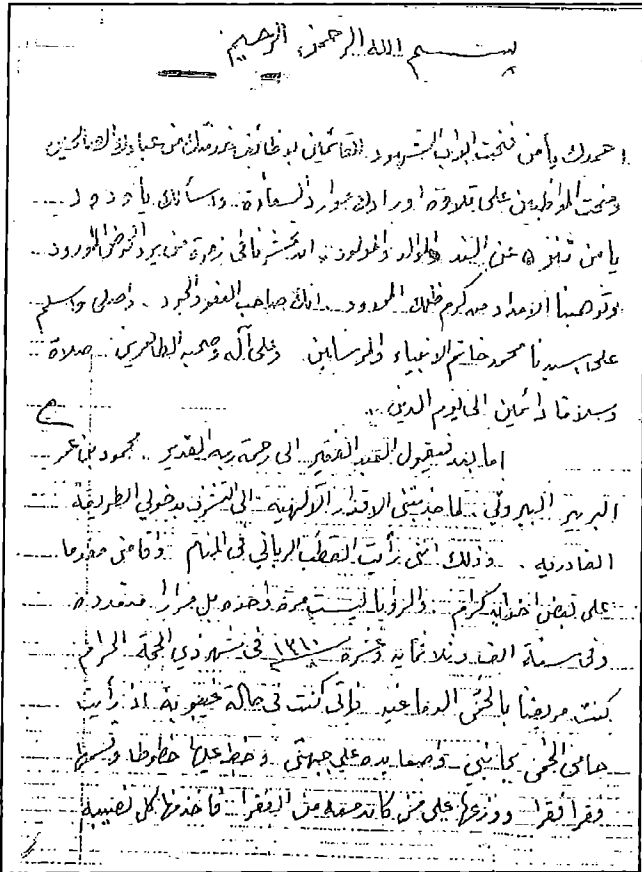 بسم الله الرحمن الرحيم
احمدك يا من فتحت ابواب الشهود للقائمين بوظائف خدمتك من عبادك الصالحين
ومنحت المواظبين على تلاوة اورادك موارد السعادة واسألك يا ودود
يا من تنزه عن الند والوالد والمولود ان تحشرنا في زمرة من يرد الحوض المورود
وتوهبنا الامداد من كرم فضلك الممدود انك صاحب العفو والجود واصلي واسلم
على سيدنا محمد خاتم الانبياء والمرسلين وعلى آله وصحبه الطاهرين صلاة
وسلاما دائمين الى يوم الدين
اما بعد فيقول العبد الفقير الى رحمة ربه القدير محمود بن عمر
البربير البيروتي لما جذبتني الاقدار الآلهية الى التشرف بدخولي الطريقة
القادرية وذلك انني رأيت القطب الرباني في المنام واقامني مقدما
على بعض اخوان كرام والرؤيا ليست مرة واحده بل مرارا متعدده
وفي سنة الف وثلاثمايه وعشرة ١٣١٠ في شهر ذي الحجة الحرام
كنت مريضا بالحمى الدماغيه فاني كنت في حالة غيبوبة اذ رأيت
حامي الحمى بجانبي واضعا يده على جبهتي وخط عليها خطوطا وقسمها
فقرا فقرا ووزعها على من كان معه من الفقرا فاخذ منها كل نصيبه